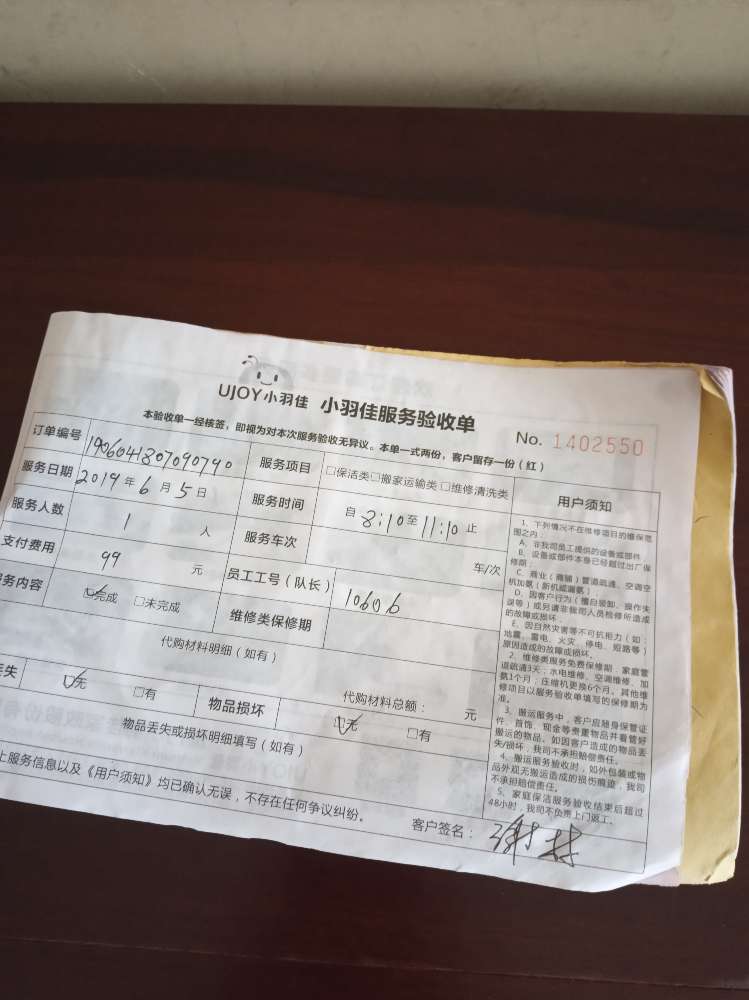 UJOY小羽佳 小羽佳服务验收单
本验收单一经核签，即视为对本次服务验收无异议。本单一式两份，客户留存一份（红）
No. 1402550
订单编号 1906041807090790 服务项目 □保洁类□搬家运输类□维修清洗类
服务日期 2019年6月5日 服务时间 自8:10至11:10止
服务人数 1 人 服务车次 车/次
支付费用 99 元 员工工号（队长） 10606
务内容 ☑完成 □未完成 维修类保修期
代购材料明细（如有）
代购材料总额： 元
丢失 ☑无 □有 物品损坏 ☑无 □有
物品丢失或损坏明细填写（如有）
上服务信息以及《用户须知》均已确认无误，不存在任何争议纠纷。
客户签名：
用户须知
1、下列情况不在维修项目的维保范
围之内：
A、非我司员工提供的设备或部件
B、设备或部件本身已经超过出厂保
修期；
C、商业（商铺）管道疏通、空调空
机加氨（新机或漏氨）
D、因客户行为（擅自装卸、操作失
误等）或另请非我司人员检修所造成
的故障或损坏
E、因自然灾害等不可抗力（如：
地震、雷电、火灾、停电、短路等）
原因造成的故障或损坏。
2、维修类服务免费保修期：家庭管
道疏通3天；水电维修、空调维修、加
氨1个月；压缩机更换6个月。其他维
修项目以服务验收单填写的保修期为
准。
3、搬运服务中，客户应随身保管证
件、首饰、现金等贵重物品并看管好
搬运的物品。如因客户造成的物品丢
失/损坏，我司不承担赔偿责任。
4、搬运服务验收时，如外包装或物
品外观无搬运造成的损伤痕迹，我司
不承担赔偿责任。
5、家庭保洁服务验收结束后超过
48小时，我司不负责上门返工。